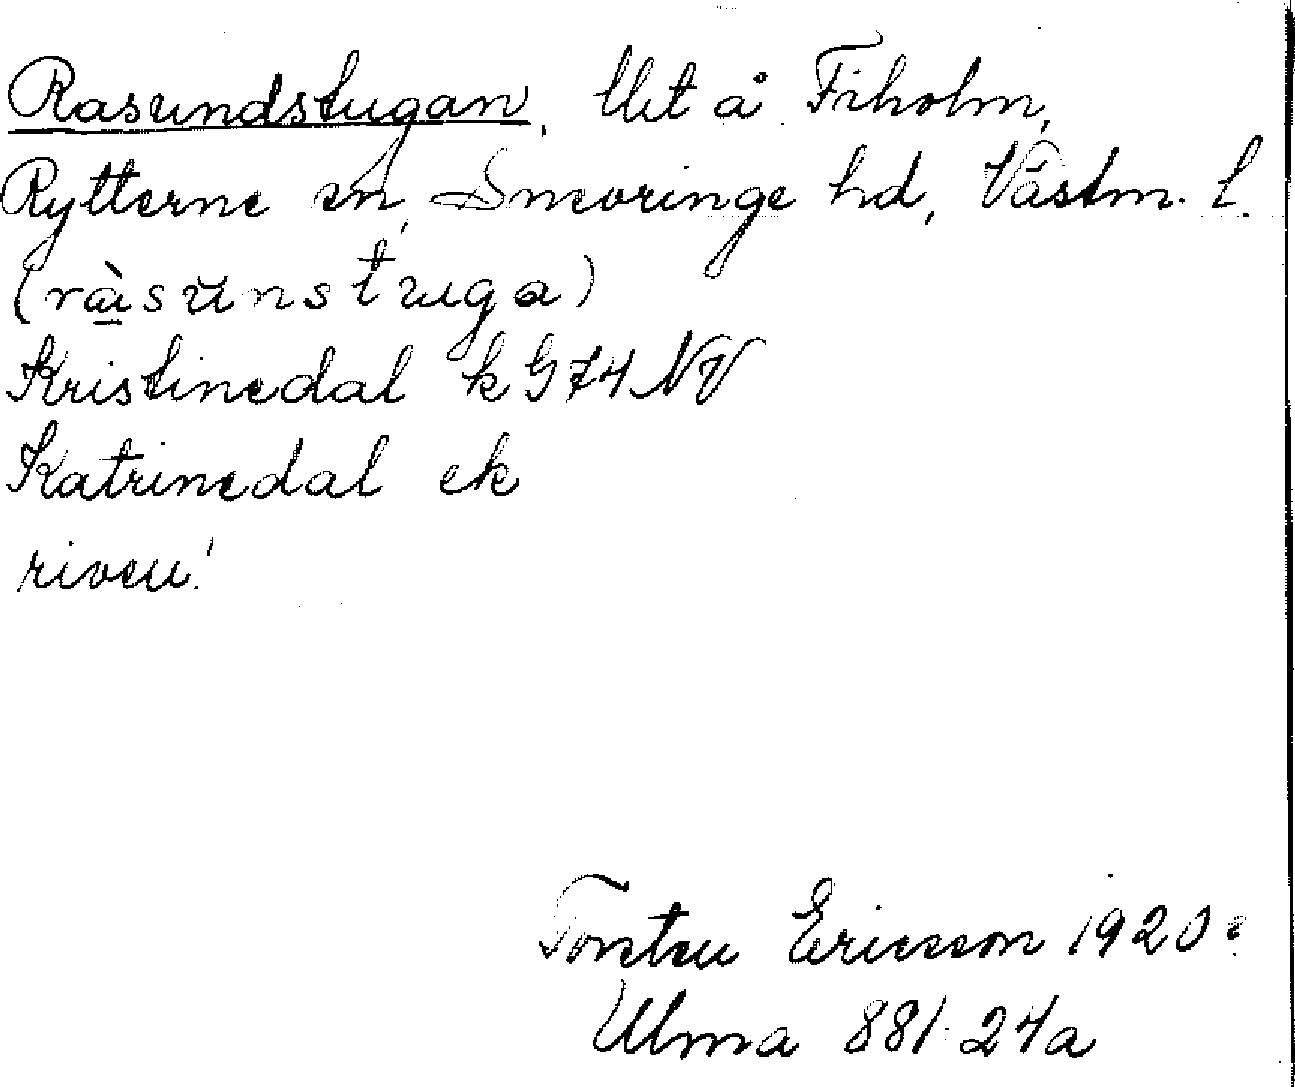 Rasundstugan, Ut å Fiholm,
Rytterne sn, Snevringe hd, Västm. l.
(ràsu̇nstuga)
Kristinedal k G74NV
Katrinedal ek
riven!
Torsten Ericsson 1920
Ulma 881:24a